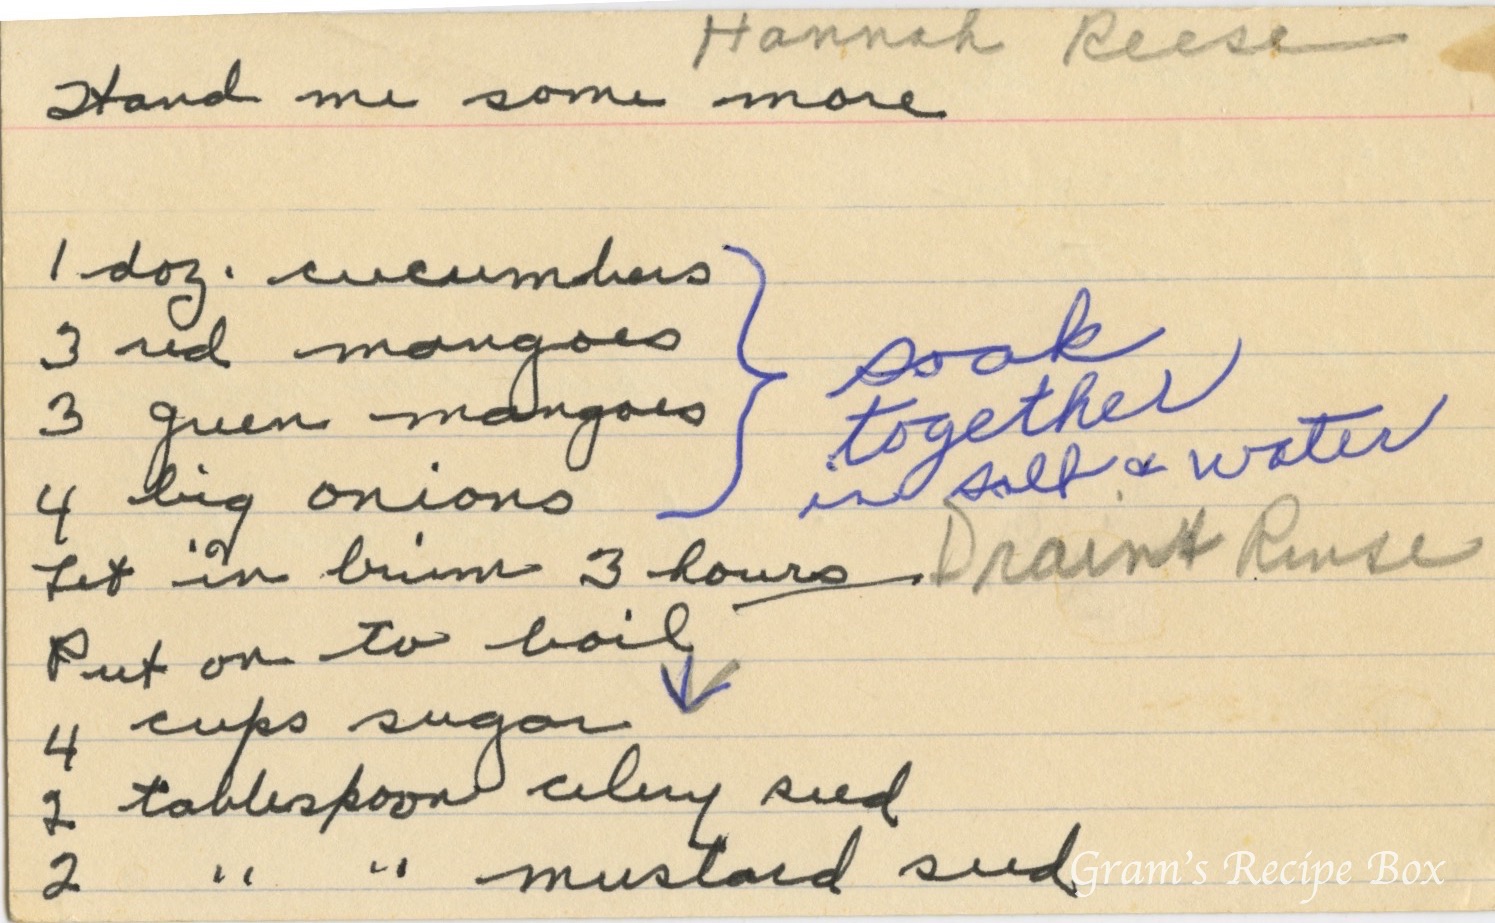 Hannah Reese
Hand me some more
1 doz. cucumbers
3 red mangoes
3 green mangoes
4 big onions
soak
together
in salt & water
Let in brine 3 hours. Drain & Rinse
Put on to boil
4 cups sugar
2 tablespoon celery seed
2 " " mustard seed
Gram's Recipe Box